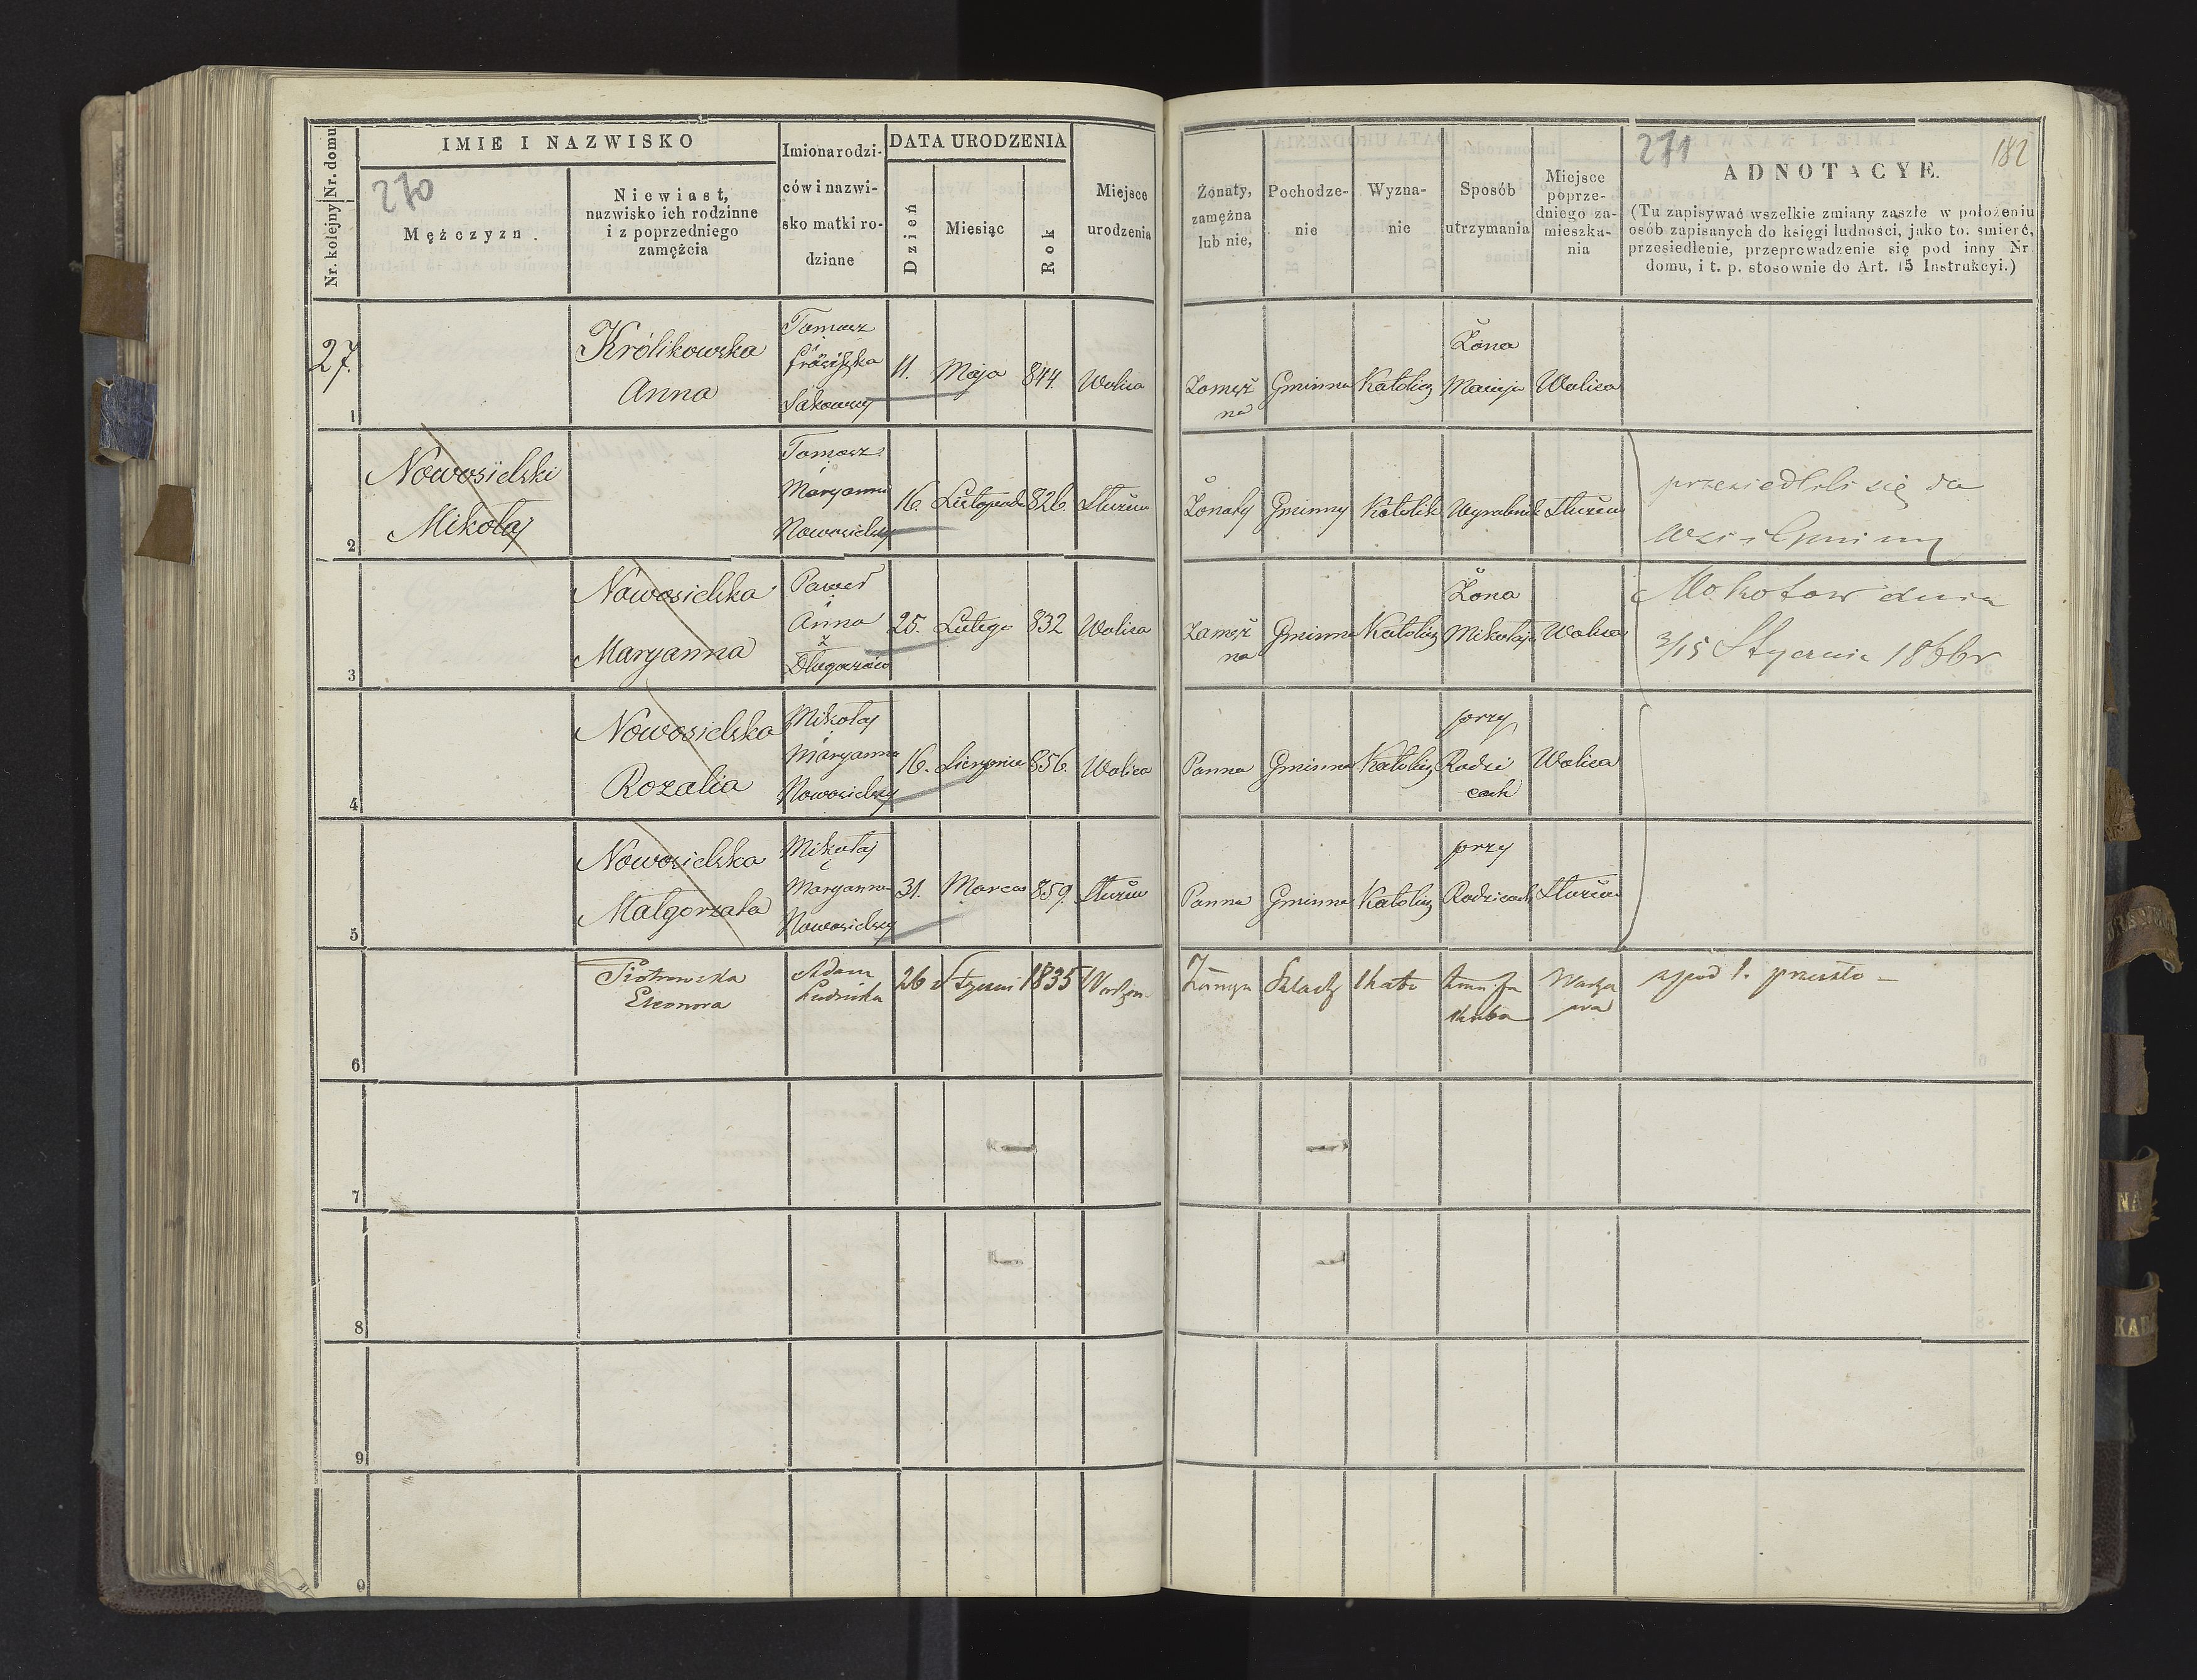 Nr. kolejny Nr. domu
IMIE I NAZWISKO
270
Mężczyzn.
Niewiast,
nazwisko ich rodzinne
i z poprzedniego
zamężcia
Imiona rodzi-
ców i nazwi-
sko matki ro-
dzinne
DATA URODZENIA
Dzień
Miesiąc
Rok
Miejsce
urodzenia
Żonaty,
zamężna
lub nie,
Pochodze-
nie
Wyzna-
nie
Sposób
utrzymania
Miejsce
poprze-
dniego za-
mieszka-
nia
271
182
ADNOTACYE.
(Tu zapisywać wszelkie zmiany zaszłe w położeniu
osób zapisanych do księgi ludności, jako to: śmierć,
przesiedlenie, przeprowadzenie się pod inny Nr.
domu, i t. p. stosownie do Art. 15 Instrukcyi.)
27.
1
Królikowska
Anna
Tomasz
i
11. Maja 844. Wolica
Zamęż
na
Gminna
Katolicz
Żona
Macieja
Wolica
2
Nowosielski
Mikołaj
Tomasz
i
Maryanna
Nowosielscy
16. Listopada 826.
Żonaty Gminny Katolik Wyrobnik
przesiedlili się do
3
Nowosielska
Maryanna
Paweł
i
Anna
z
Długoszów
25. Lutego 832 Wolica
Zamęż
na
Gminna
Katolicz
Żona
Mikołaja
Wolica
Mokotow dnia
3/15 Stycznia 1866 r
4
Nowosielska
Rozalia
Mikołaj
i
Maryanna
Nowosielscy
16. Sierpnia 856. Wolica
Panna Gminna Katolicz
przy
Rodzi
cach
Wolica
5
Nowosielska
Małgorzata
Mikołaj
i
Maryanna
Nowosielscy
31. Marca 859.
Panna Gminna Katolicz
przy
Rodzicach
6
Piotrowska
Eleonora
Adam
Ludwika
26 Styczni 1835
Warsza
wa
7
8
9
0